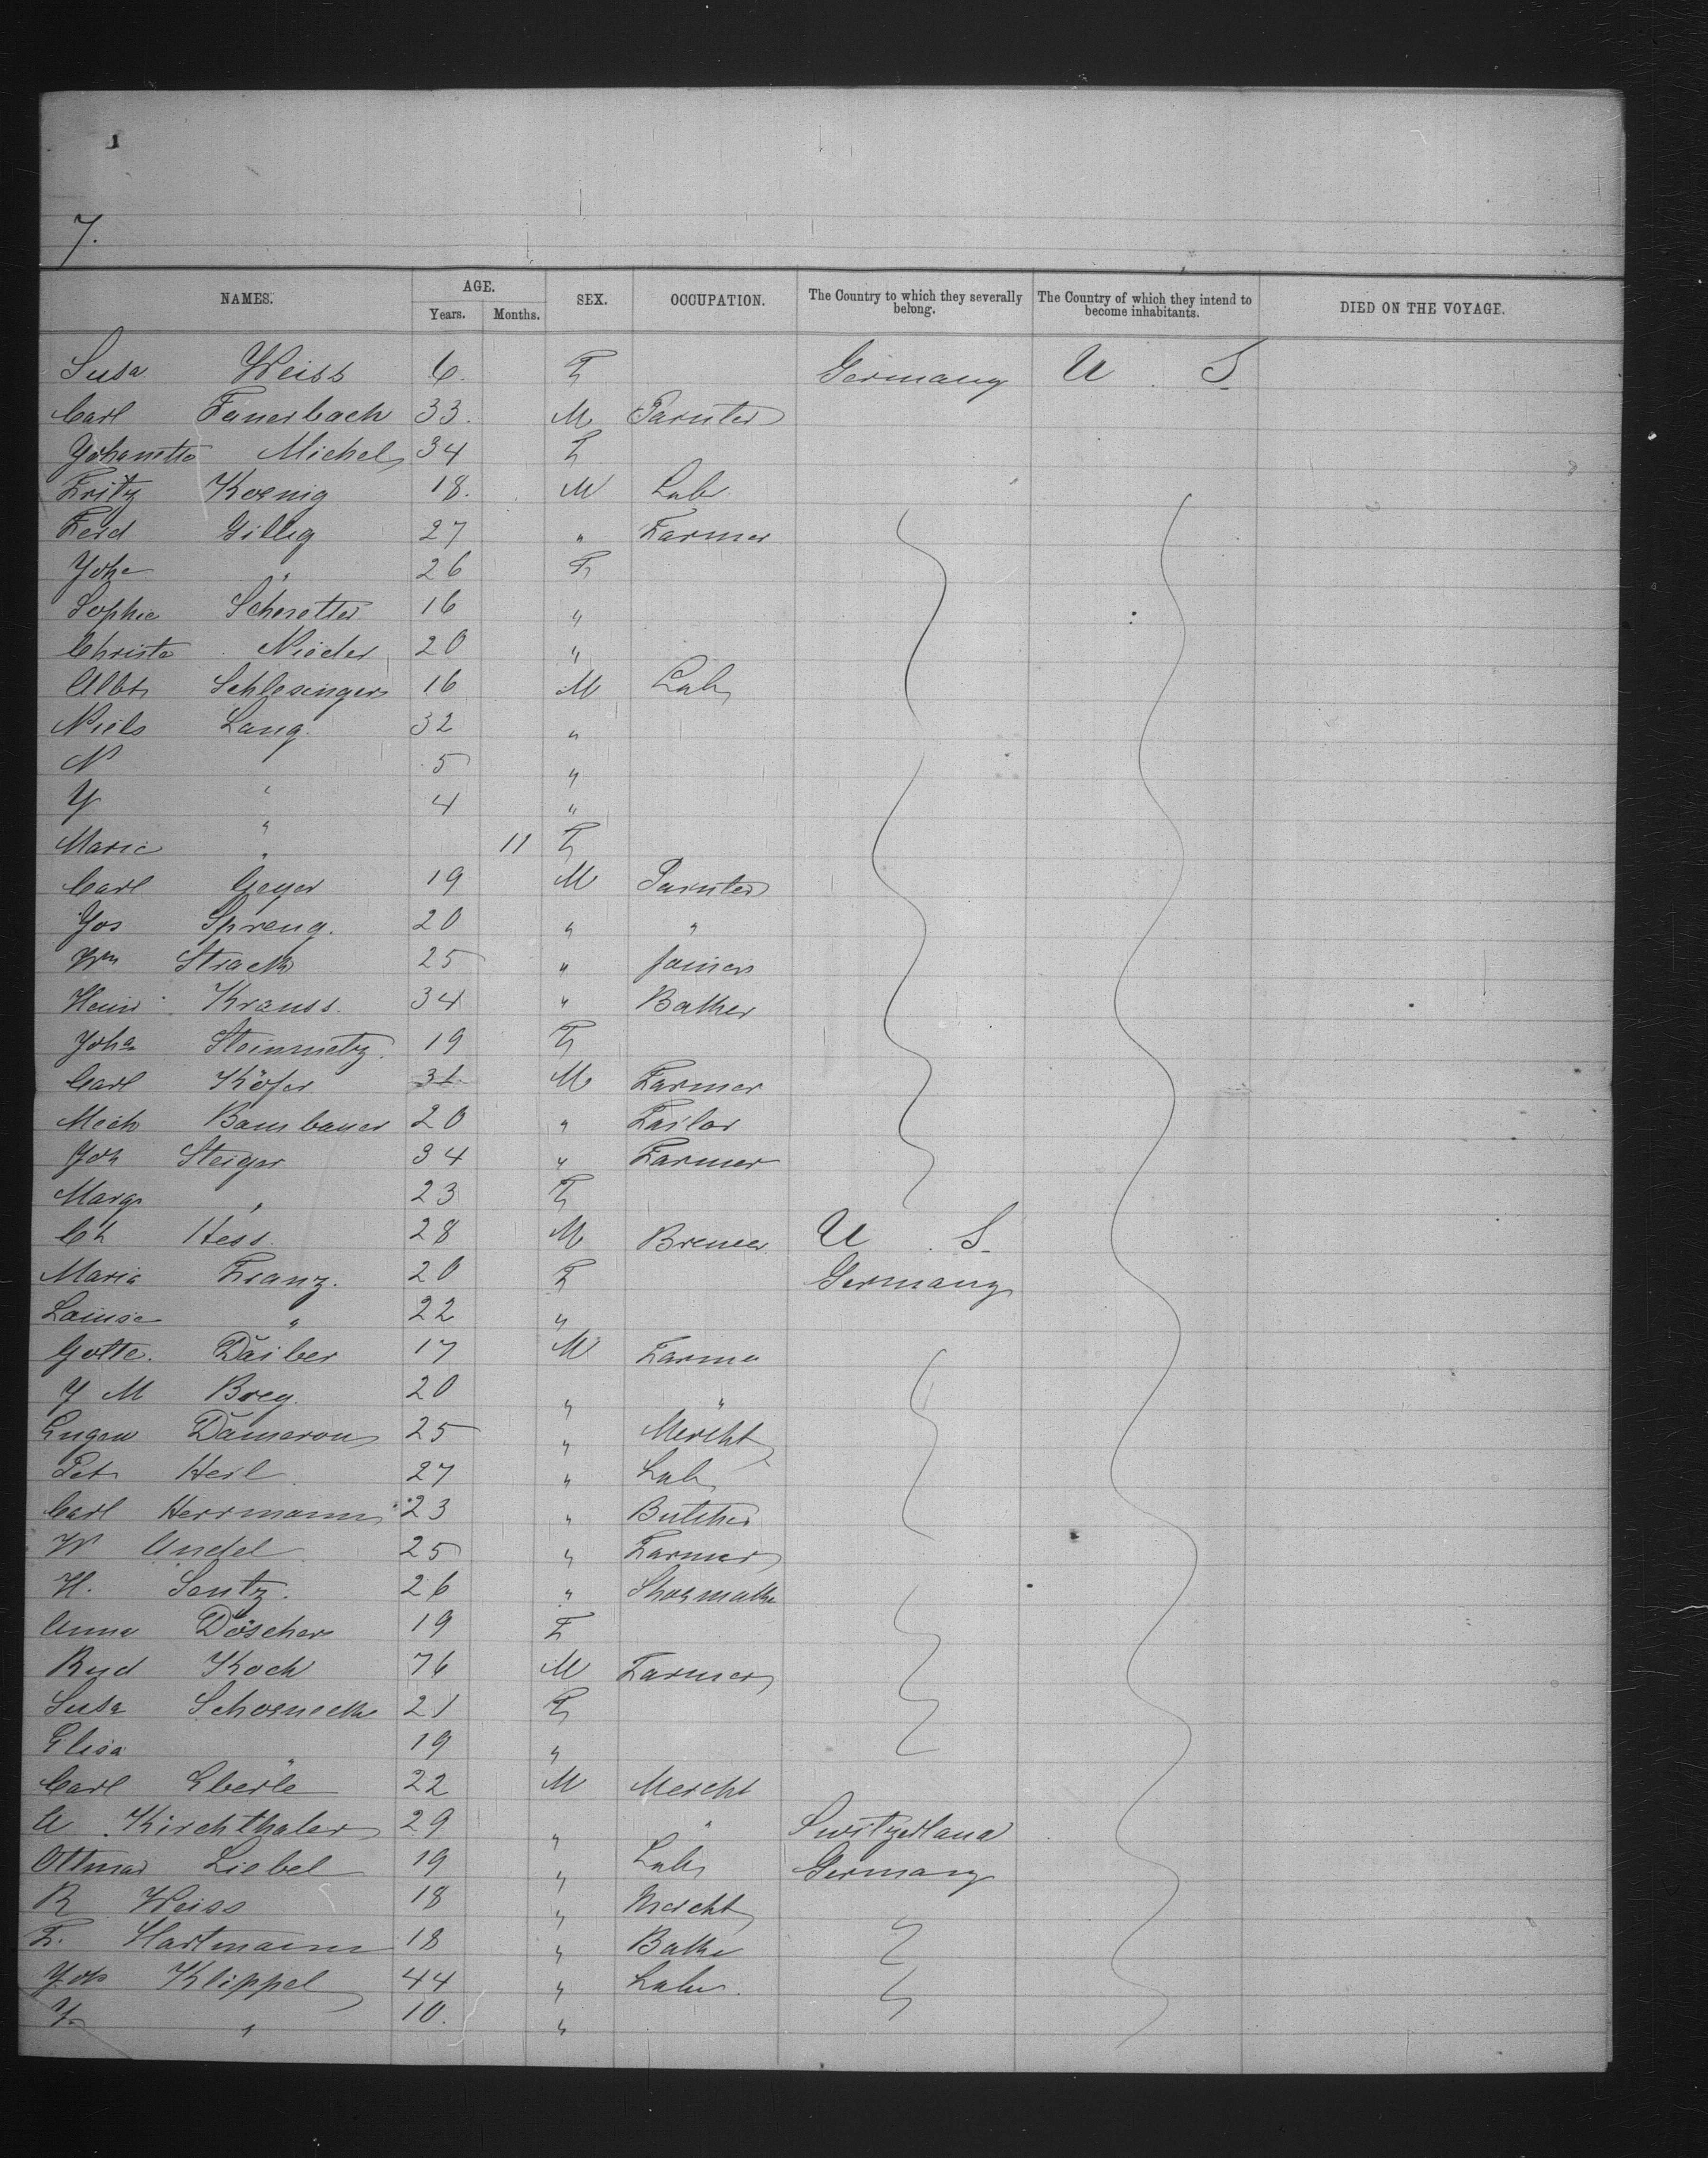 7.
NAMES. AGE. Years. Months. SEX. OCCUPATION. The Country to which they severally belong. The Country of which they intend to become inhabitants. DIED ON THE VOYAGE.
Susa Weiss 6. F Germany U S
Carl Fauerbach 33. M Painter
Johanetta Michel 34 F
Fritz Koenig 18. M Labr
Ferd Gillig 27 " Farmer
Joha " 26 F
Sophie 16 "
Christa Nieder 20 "
Albt Schlesinger 16 M Labr
Niels Lang. 32 "
N " 5 "
Y " 4 "
Marie " 11 F
Carl Geyer 19 M Painter
Jos Spreng. 20 " "
Wm Strack 25 " Joiner
Heinr Krauss. 34 " Baker
Joha Steinmetz. 19 F
Carl Köfer M Farmer
Mich Bambauer 20 " Tailor
Joh Steiger 34 " Farmer
Marg " 23 F
Ch Hess. 28 M Brewer U S.
Maria Franz. 20 F Germany
Louise " 22 "
Gotte. Daiber 17 M Farmer
J M Brey. 20 " "
Eugen Dameron 25 " Mercht
Pet Heil 27 " Labr
Carl Herrmann 23 " Butcher
W Andel 25 " Farmer
H. Sentz. 26 " Shoemaker
Anna Döscher 19 F
Rud Koch 76 M Farmer
Susa Schoeneck 21 F
Elisa " 19 "
Carl Eberle 22 M Mercht
A Kirchthaler 29 " " Switzerland
Ottmar Liebel 19 " Labr Germany
R Weiss 18 " Mercht
F. Hartmann 18 " Baker
Joh Klippel 44 " Labr.
J. " 10. "